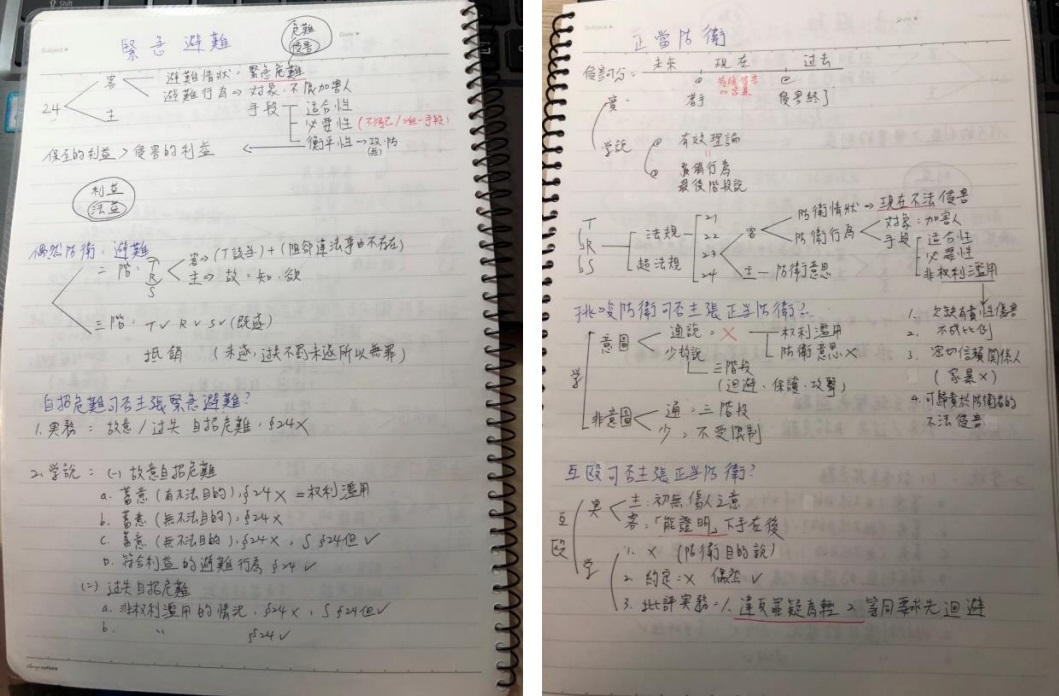 緊急避難
危難
侵害
24
客
避難情狀：緊急危難
避難行為⇒對象：不限加害人
手段
適合性
必要性（不得已/唯一手段）
衡平性→
主
保全的利益＞侵害的利益
利益
法益
偶然防衛、避難
二階：T R S
客⇒(T該當)＋(阻卻違法事由不存在)
主⇒故：知、欲
三階：T∨ R∨ S∨ (既遂)
抵銷（未遂，過失不罰未遂所以無罪）
自招危難可否主張緊急避難？
1.實務：故意/过失自招危難，§24×
2.学說：(一)故意自招危難
a.蓄意(有不法目的)，§24×＝权利濫用
b.蓄意(無不法目的)，§24×
c.蓄意(無不法目的)，§24×，§24但∨
D.符合利益的避難行為§24∨
(二)过失自招危難
a.非权利濫用的情況，§24×，§24但∨
b. 〃 §24∨
正當防衛
未來 現在 过去
侵害可分：
實：
著手
侵害終了
学說
有效理論
預備行為
最後階段說
T
R
S
法規
超法規
21
22
23
24
客
防衛情狀→現在不法侵害
防衛行為
對象：加害人
手段
適合性
必要性
非权利濫用
主－防衛意思
挑唆防衛可否主張正當防衛？
学
意圖
通說：×
权利濫用
防衛意思×
少數說
三階段
(迴避、保護、攻擊)
非意圖
通：三階段
少：不受限制
1.欠缺有責性侵害
2.不成比例
3.密切信賴關係人
（家暴×）
4.可歸責於防衛者的
不法侵害
互毆可否主張正當防衛？
互毆
実
主：初無傷人之意
客：「能證明」下手在後
学
1.×（防衛目的說）
2.約定：× 偶然∨
3.批評実務：1.違反罪疑為輕 2.等同要求先迴避